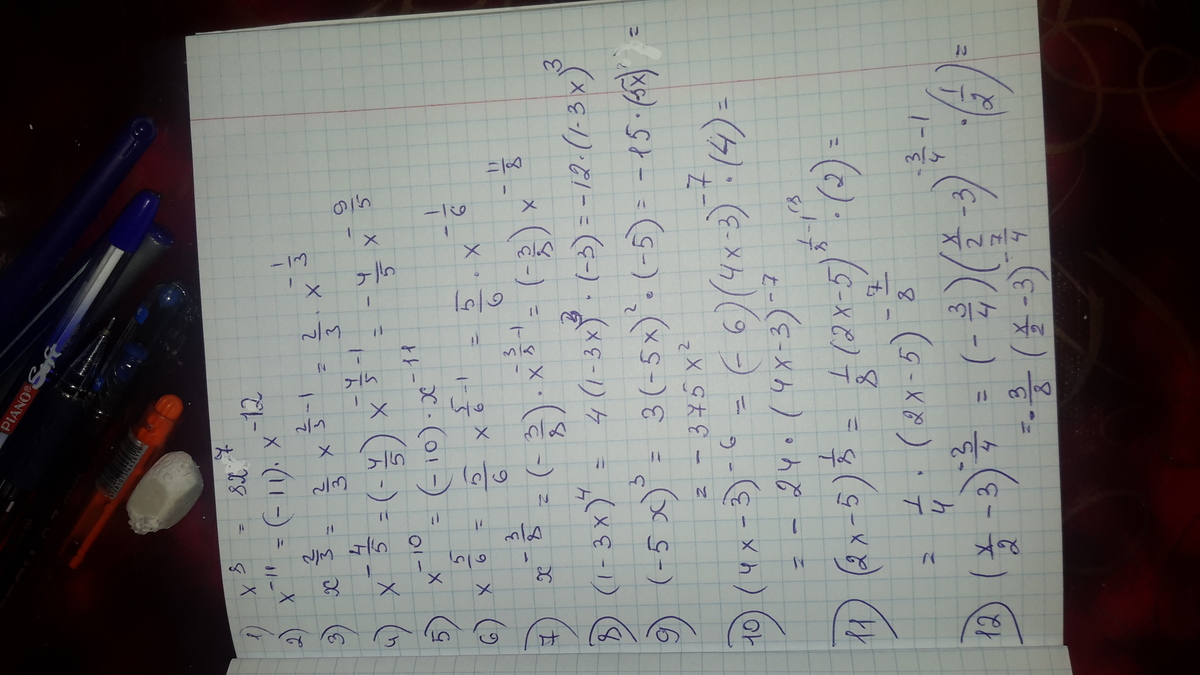 1) x^8 = 8x^7
2) x^-11 = (-11) · x^-12
3) x^2/3 = 2/3 x^2/3-1 = 2/3 · x^-1/3
4) x^-4/5 = (-4/5) x^-4/5-1 = -4/5 x^-9/5
5) x^-10 = (-10) · x^-11
6) x^5/6 = 5/6 x^5/6-1 = 5/6 · x^-1/6
7) x^-3/8 = (-3/8) · x^-3/8-1 = (-3/8) x^-11/8
8) (1-3x)^4 = 4(1-3x)^3 · (-3) = -12·(1-3x)^3
9) (-5x)^3 = 3(-5x)^2 · (-5) = -15·(5x)^2 =
= -375x^2
10) (4x-3)^-6 = (-6)(4x-3)^-7 · (4) =
= -24·(4x-3)^-7
11) (2x-5)^1/8 = 1/8 (2x-5)^1/8-1 · (2) =
= 1/4 · (2x-5)^-7/8
12) (x/2-3)^-3/4 = (-3/4)(x/2-3)^-3/4-1 · (1/2) =
= -3/8 (x/2-3)^-7/4
PIANO Soft